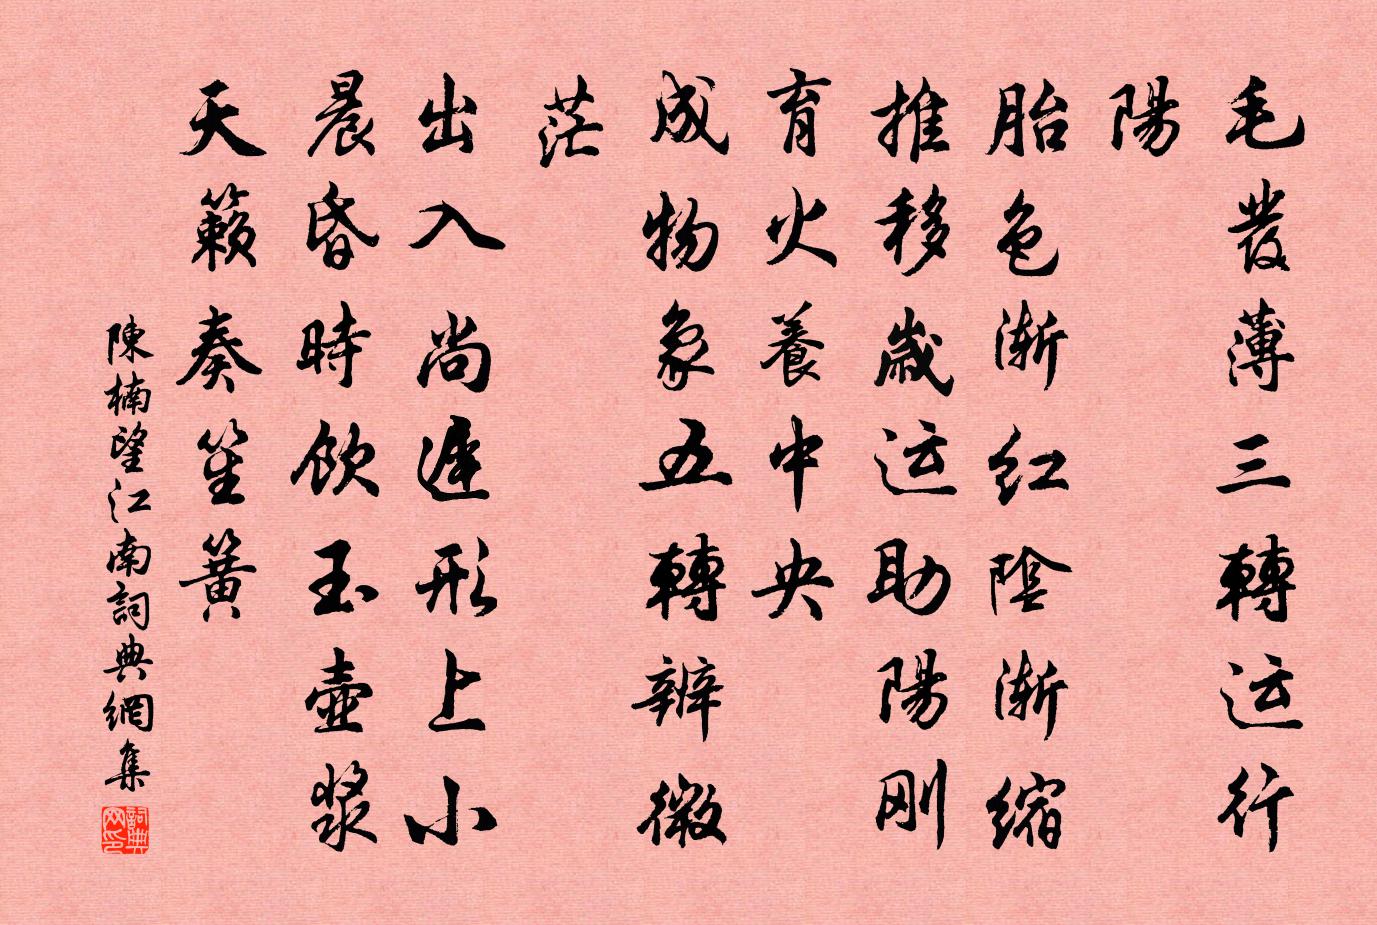 毛發薄三轉运行
陽
胎色渐红陰渐缩
推移歲运助陽刚
育火養中央
成物象五轉辨微
茫
出入尚遲形上小
晨昏時飲玉壺漿
天籟奏笙簧
陳楠望江南詞典網集
詞典网印